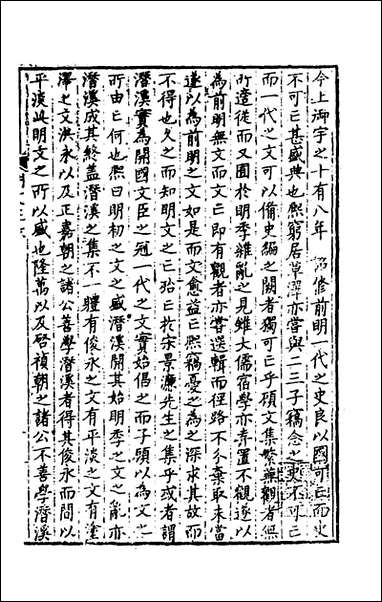 今上御宇之十有八年 詔修前明一代之史良以國可亡而史
不可亡甚盛典也熙窮居草澤亦嘗與二三子竊念之史不可亡
而一代之文可以備史編之闕者獨可亡乎顧文集繁蕪觀者無
所遵從而又囿於明季雜亂之見雖大儒宿學亦弃置不觀遂以
為前明無文而文亡即有觀者亦嘗選輯而徑路不分棄取未當
遂以為前明之文如是而文愈益亡熙竊憂之為之深求其故而
不得也久之而知明文之亡殆亡於宋景濂先生之集乎或者謂
潛溪實為開國文臣之冠一代之文實始倡之而子顧以為文之
所由亡何也熙曰明初之文之盛潛溪開其始明季之文之亂亦
潛溪成其終盖潛溪之集不一體有俊永之文有平淡之文有塗
澤之文洪永以及正嘉朝之諸公善學潛溪者得其俊永而間以
平淡此明文之所以盛也隆萬以及啓禎朝之諸公不善學潛溪